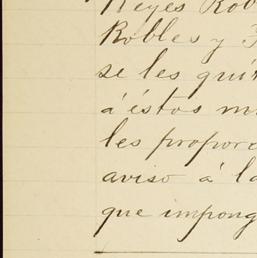 Reyes Rob
Robles y
se les qui
á éstos m
les propor
aviso á la
que impong